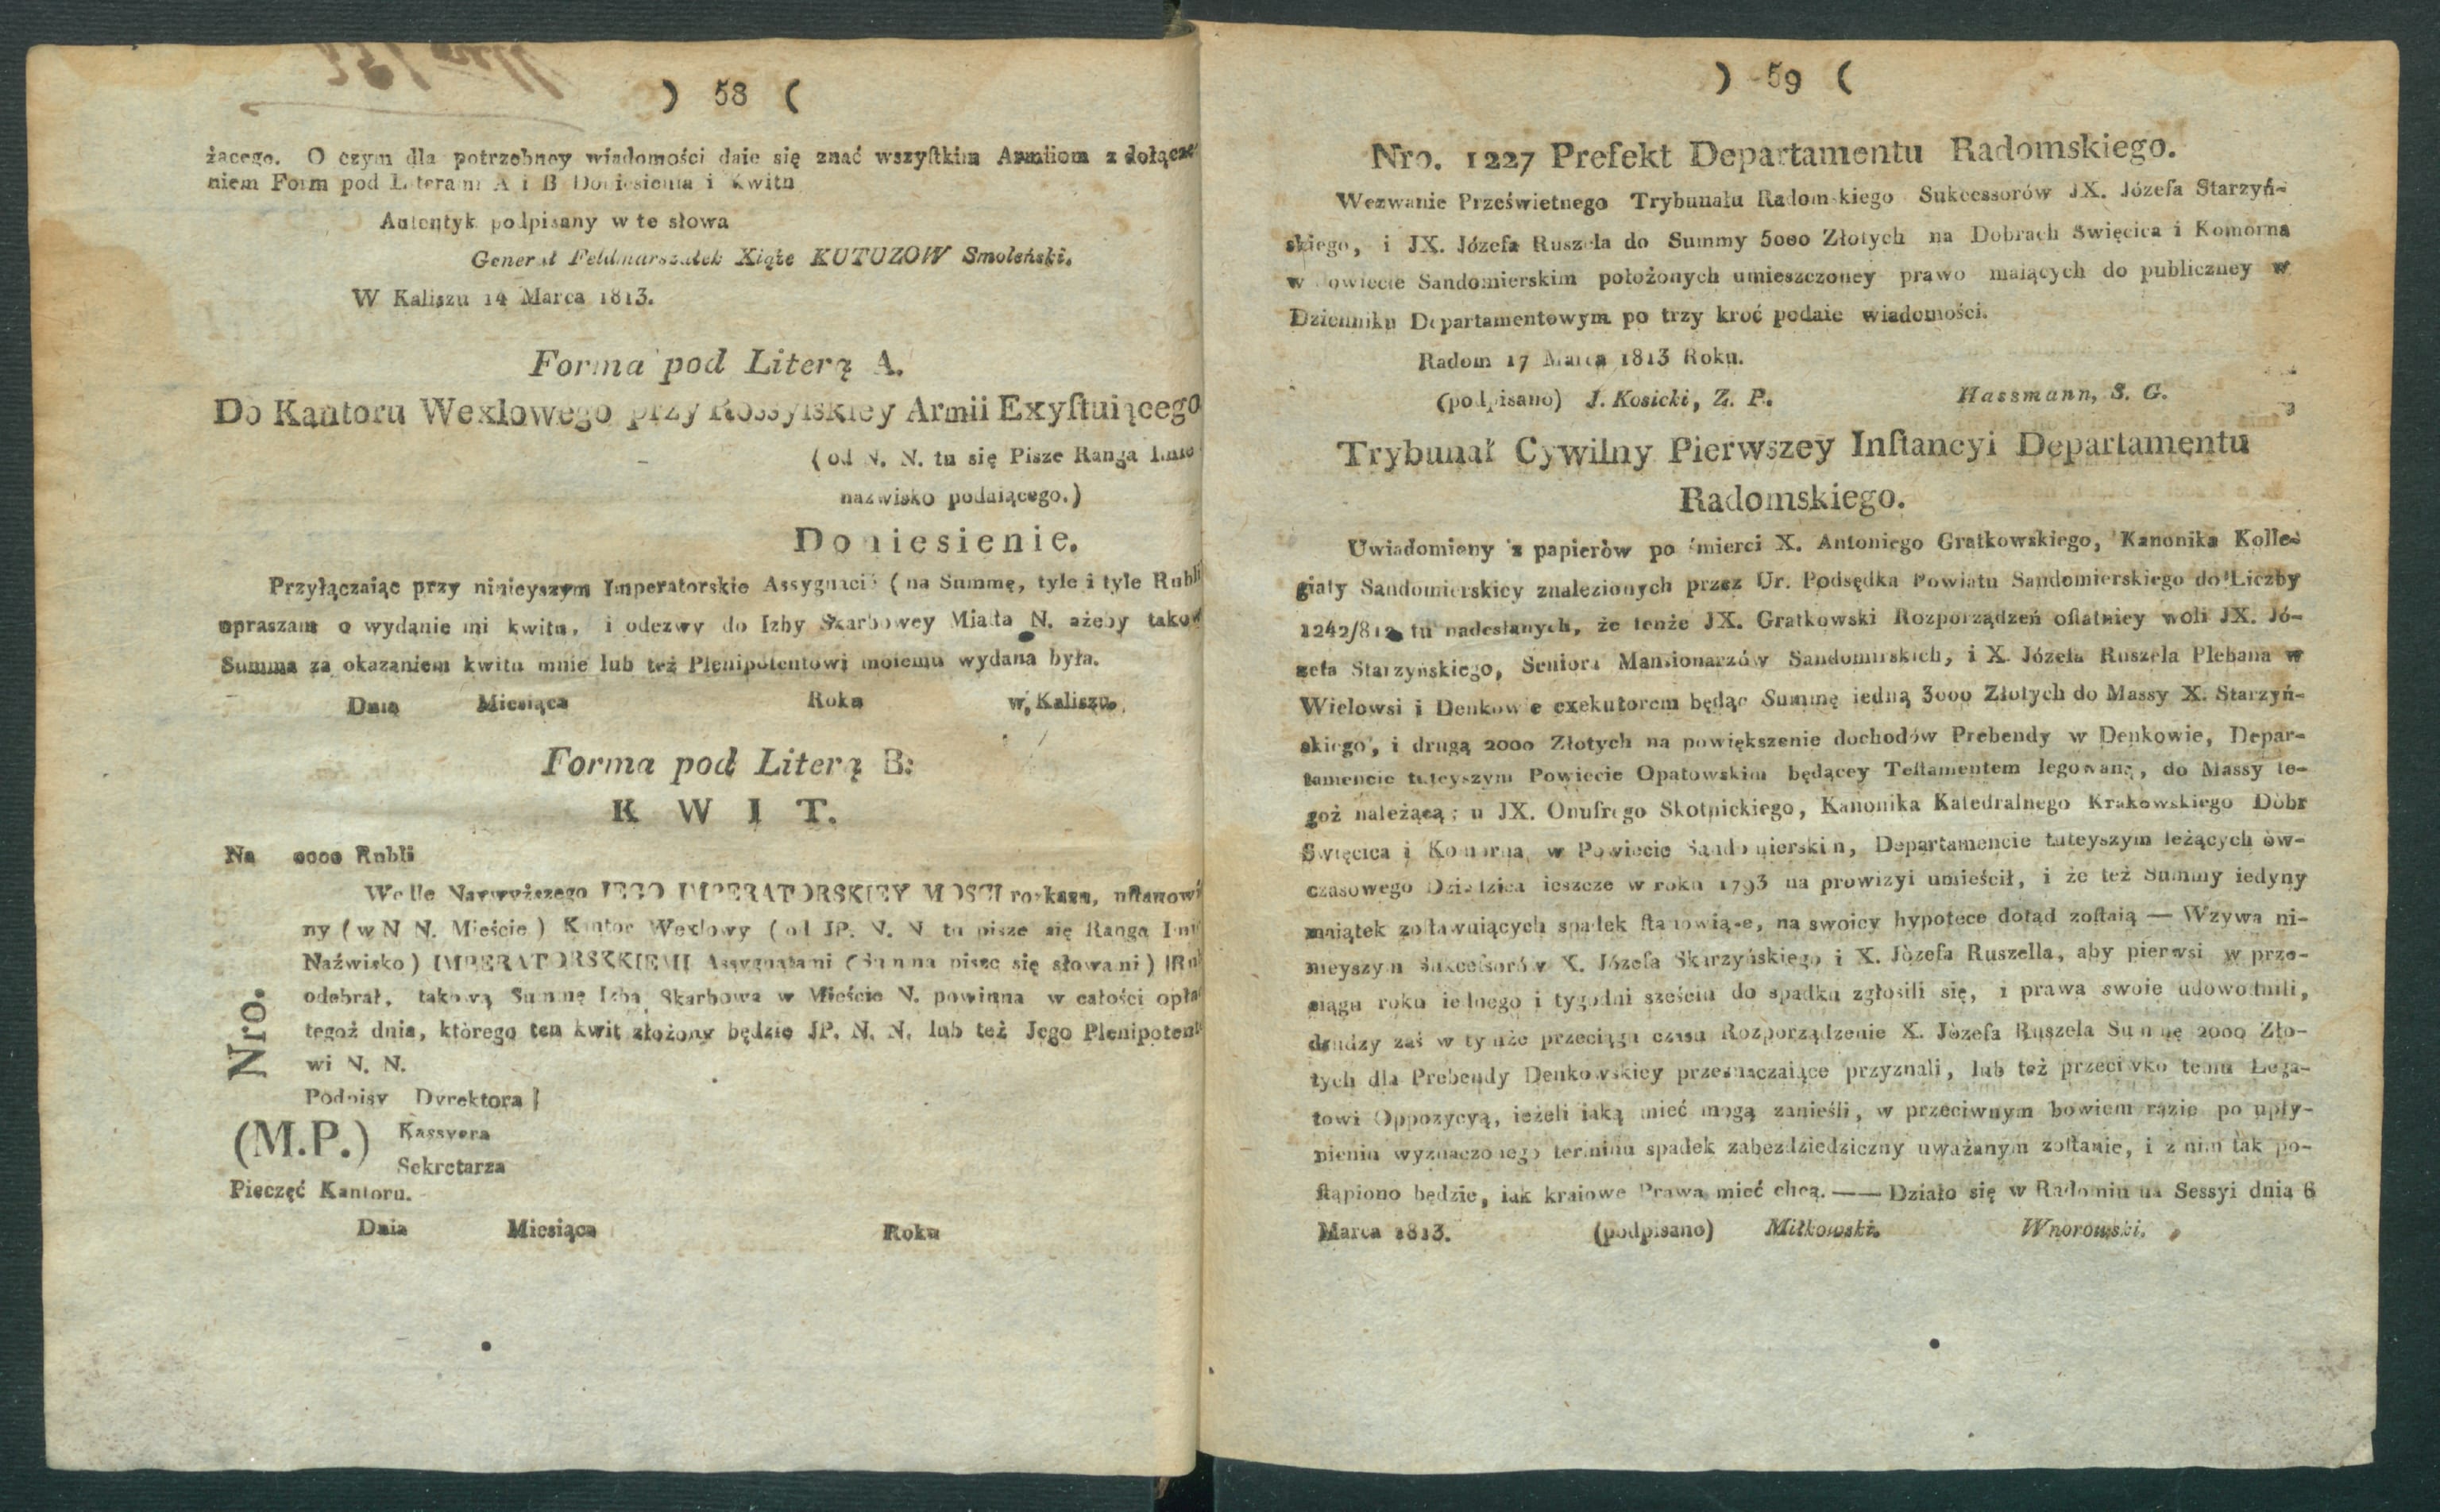 ) 58 (
żącego. O czym dla potrzebney wiadomości daie się znać wszyſtkim Armiiom z dołącze
niem Form pod Literami A i B Doniesienia i Kwitu
Autentyk podpisany w te słowa
Generał Feldmarszałek Xiąże KUTUZOW Smoleński.
W Kaliszu 14 Marca 1813.
Forma pod Literą A.
Do Kantoru Wexlowego przy Rossyiskiey Armii Exyſtuiącego
(od N. N. tu się Pisze Ranga Imie
nazwisko podaiącego.)
Doniesienie.
Przyłączaiąc przy ninieyszym Imperatorskie Assygnacie (na Summę, tyle i tyle Rubli
upraszam o wydanie mi kwitu, i odezwy do Izby Skarbowey Miaſta N. ażeby takow
Summa za okazaniem kwitu mnie lub też Plenipotentowi moiemu wydana była.
Dnia Miesiąca Roku w Kaliszu.
Forma pod Literą B:
K W I T.
Na 0000 Rubli
Wedle Naywyższego IEGO IMPERATORSKIEY MOSCI rozkazu, uſtanowi
ny (w N N. Mieście) Kantor Wexlowy (od JP. N. N tu pisze się Ranga Imi
Naźwisko) IMPERATORSKKIEMI Assygnatami (Summa pisze się słowami) Rub
odebrał, takową Summę Izba Skarbowa w Mieście N. powinna w całości opła
tegoż dnia, którego ten kwit złożony będzie JP. N. N. lub też Jego Plenipotent
wi N. N.
Nro.
Podpisy Dyrektora
(M.P.) Kassyera
Sekretarza
Pieczęć Kantoru.
Dnia Miesiąca Roku
) 59 (
Nro. 1227 Prefekt Departamentu Radomskiego.
Wezwanie Prześwietnego Trybunału Radomskiego Sukcessorów JX. Józefa Starzyń-
skiego, i JX. Józefa Ruszela do Summy 5000 Złotych na Dobrach Swięcica i Komorna
w Powiecie Sandomierskim położonych umieszczoney prawo maiących do publiczney w
Dzienniku Departamentowym po trzy kroć podaie wiadomości.
Radom 17 Marca 1813 Roku.
(podpisano) J. Kosicki, Z. P. Hassmann, S. G.
Trybunał Cywilny Pierwszey Inſtancyi Departamentu
Radomskiego.
Uwiadomiony z papierów po śmierci X. Antoniego Gratkowskiego, Kanonika Kolle-
giaty Sandomierskiey znalezionych przez Ur. Podsędka Powiatu Sandomierskiego do Liczby
1242/812 tu nadesłanych, że tenże JX. Gratkowski Rozporządzeń oſtatniey woli JX. Jó-
zefa Starzyńskiego, Seniora Mansionarzów Sandomirskich, i X. Józefa Ruszela Plebana w
Wielowsi i Denkowie exekutorem będąc Summę iedną 3000 Złotych do Massy X. Starzyń-
skiego, i drugą 2000 Złotych na powiększenie dochodów Prebendy w Denkowie, Depar-
tamencie tuteyszym Powiecie Opatowskim będącey Teſtamentem legowaną, do Massy te-
goż należącą; u JX. Onufrego Skotnickiego, Kanonika Katedralnego Krakowskiego Dóbr
Swięcica i Komorna w Powiecie Sandomierskim, Departamencie tuteyszym leżących ow-
czasowego Dziedzica ieszcze w roku 1793 na prowizyi umieścił, i że też Summy iedyny
maiątek zoſtawuiących spadek ſtanowiące, na swoicy hypotece dotąd zoſtaią — Wzywa ni-
nieyszym Sukcefsorów X. Józefa Skarzyńskiego i X. Józefa Ruszella, aby pierwsi w prze-
ciągu roku iednego i tygodni sześciu do spadku zgłosili się, i prawa swoie udowodnili,
drudzy zaś w tymże przeciągu czasu Rozporządzenie X. Józefa Ruszela Summę 2000 Zło-
tych dla Prebendy Denkowskiey przeznaczaiące przyznali, lub też przeciwko temu Lega-
towi Oppozycyą, ieżeli iaką mieć mogą zanieśli, w przeciwnym bowiem razie po upły-
nieniu wyznaczonego terminu spadek zabezdziedziczny uważanym zoſtanie, i z nim tak po-
ſtąpiono będzie, iak kraiowe Prawa mieć chcą. —— Działo się w Radomiu na Sessyi dnia 6
Marca 1813. (podpisano) Miłkowski. Wnorowski.